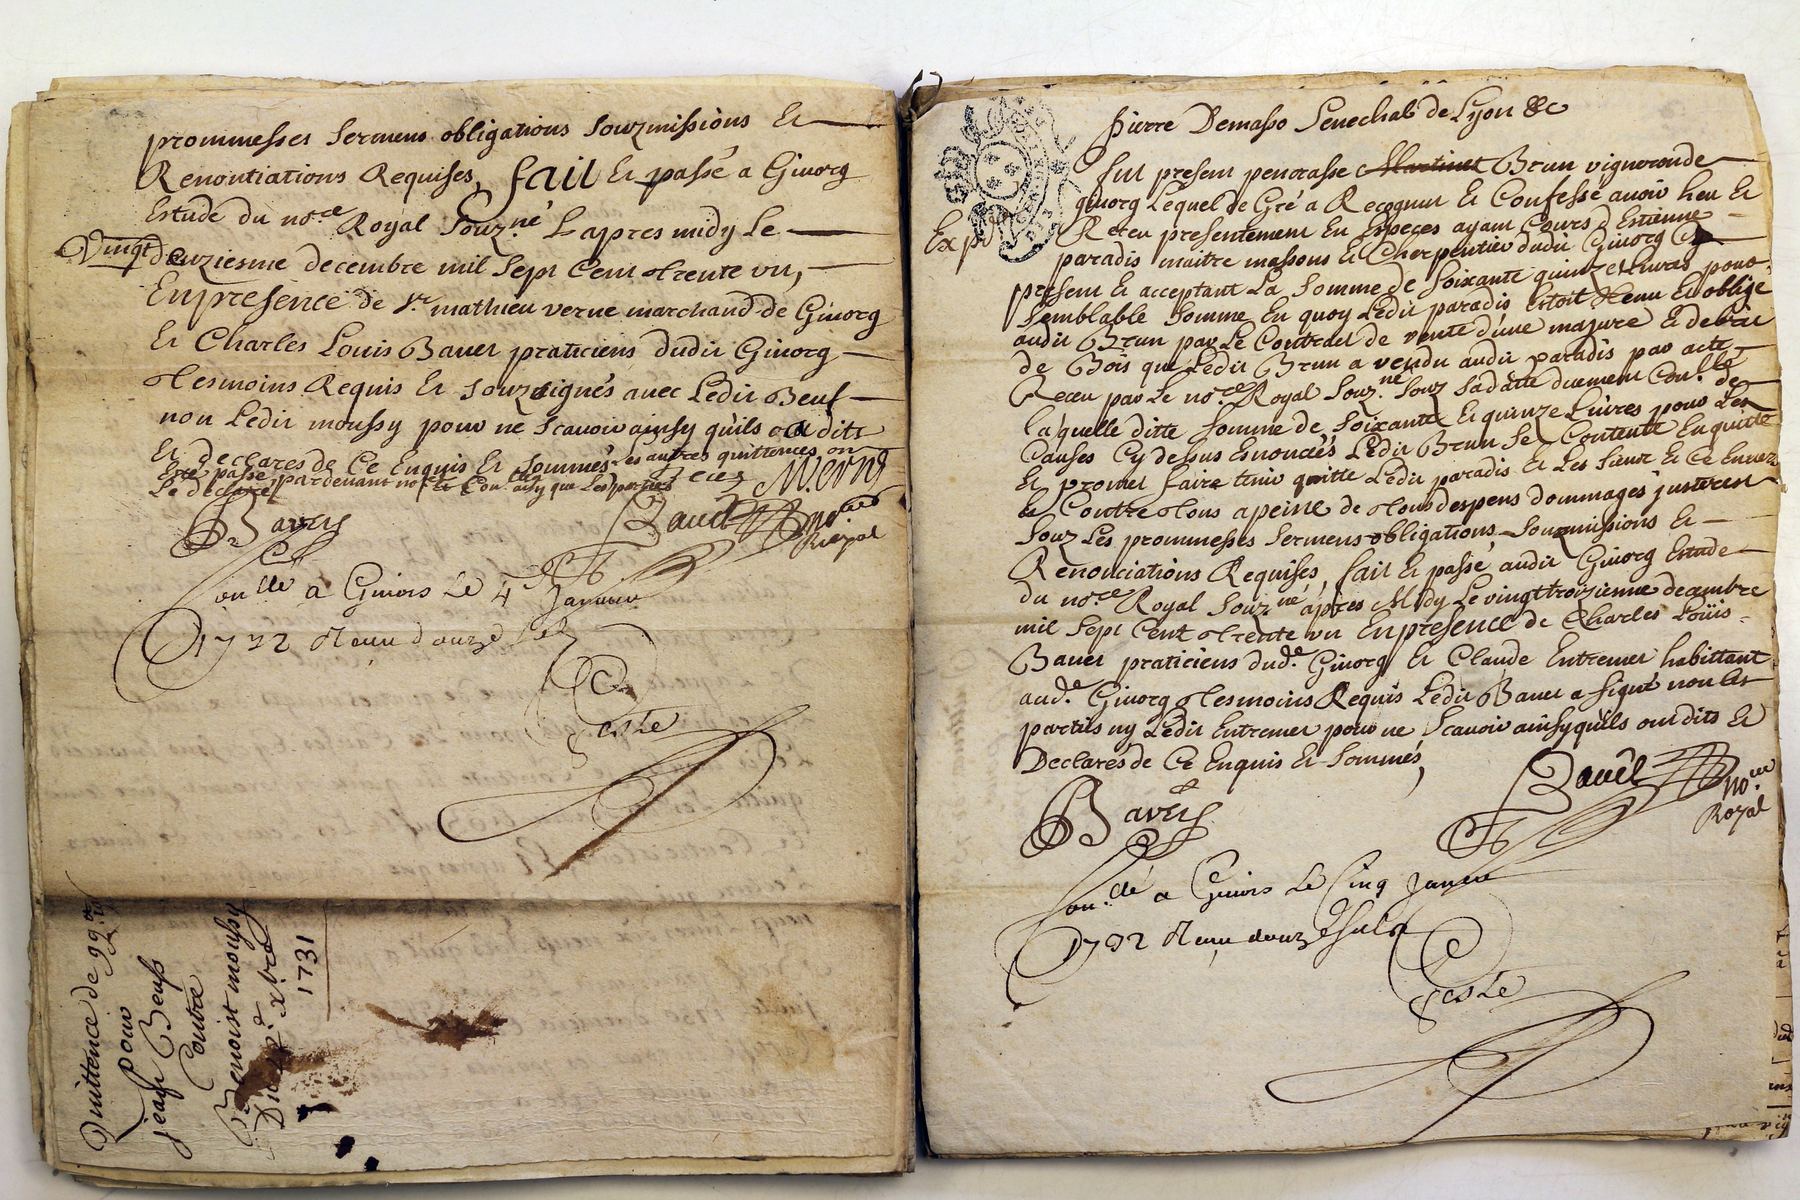 prommesses sermens obligations souzmissions Et
Renontiations Requises, fait Et passé a Givorg
Estude du no.re Royal souz.né L apres midy le
Vingt deuziesme decembre mil sept cent trente un,
En presence de s.r mathieu verne marchand de Givorg
Et Charles Louis Baver praticiens dudit Givorg
tesmoins Requis Et souzsignés avec Ledit Beuf
non Ledit moussy pour ne scavoir ainsy quils ont dits
Et declares de Ce Enquis Et sommés Les autres quittences on
Esté passé pardevant no.re Et ainsy que Les parties
Le declare
M. Verne
Baver
Bauel no.re
Royal
Con.llé a Givors Le 4e Janvier
1732 Receu douze sols
Ceste
Quittence de 99
pour
jean Beuf
Contre
Benoist moussy
Du 22.e xbre
1731
pierre Demasso Senechal de Lyon &c
Expé
fut present penorasse Martinet Brun vigneron de
givorg Lequel de Gré a Recognu Et Confessé avoir heu Et
Receu presentement En Especes ayant Cours d Estienne
paradis maitre masson Et Charpentier dudit Givorg Cy
present Et acceptant La somme de soixante quinze livres pour
semblable somme En quoy Ledit paradis Estoit tenu Et oblige
audit Brun par Le Contract de vente d'une majure Et debris
de Bois que Ledit Brun a vendu audit paradis par acte
Receu par Le no.re Royal souz.né souz sa datte duement Con.llé
laquelle ditte somme de soixante Et quinze Livres pour Les
Causes Cy dessus Enoncées Ledit Brun se Contente En quitte
Et promet faire tenir quitte Ledit paradis Et Les siens Et Ce Envers
Et Contre tous a peine de tous despens dommages jnterest
souz Les prommesses sermens obligations souzmissions Et
Renonciations Requises, fait Et passé audit Givorg Estude
du no.re Royal souz.né apres Midy Le vingt troizienme decembre
mil sept Cent trente un En presence de Charles Loüis
Baver praticiens dud.t Givorg Et Claude Entremer habittant
aud.t Givorg tesmoins Requis Ledit Baver a signé non Les
parties ny Ledit Entremer pour ne scavoir ainsy quils ont dits Et
Declarés de Ce Enquis Et sommés,
Baver
Bauel no.re
Royal
Con.llé a Givors Le Cinq Janvier
1732 Receu douze sols
Ceste